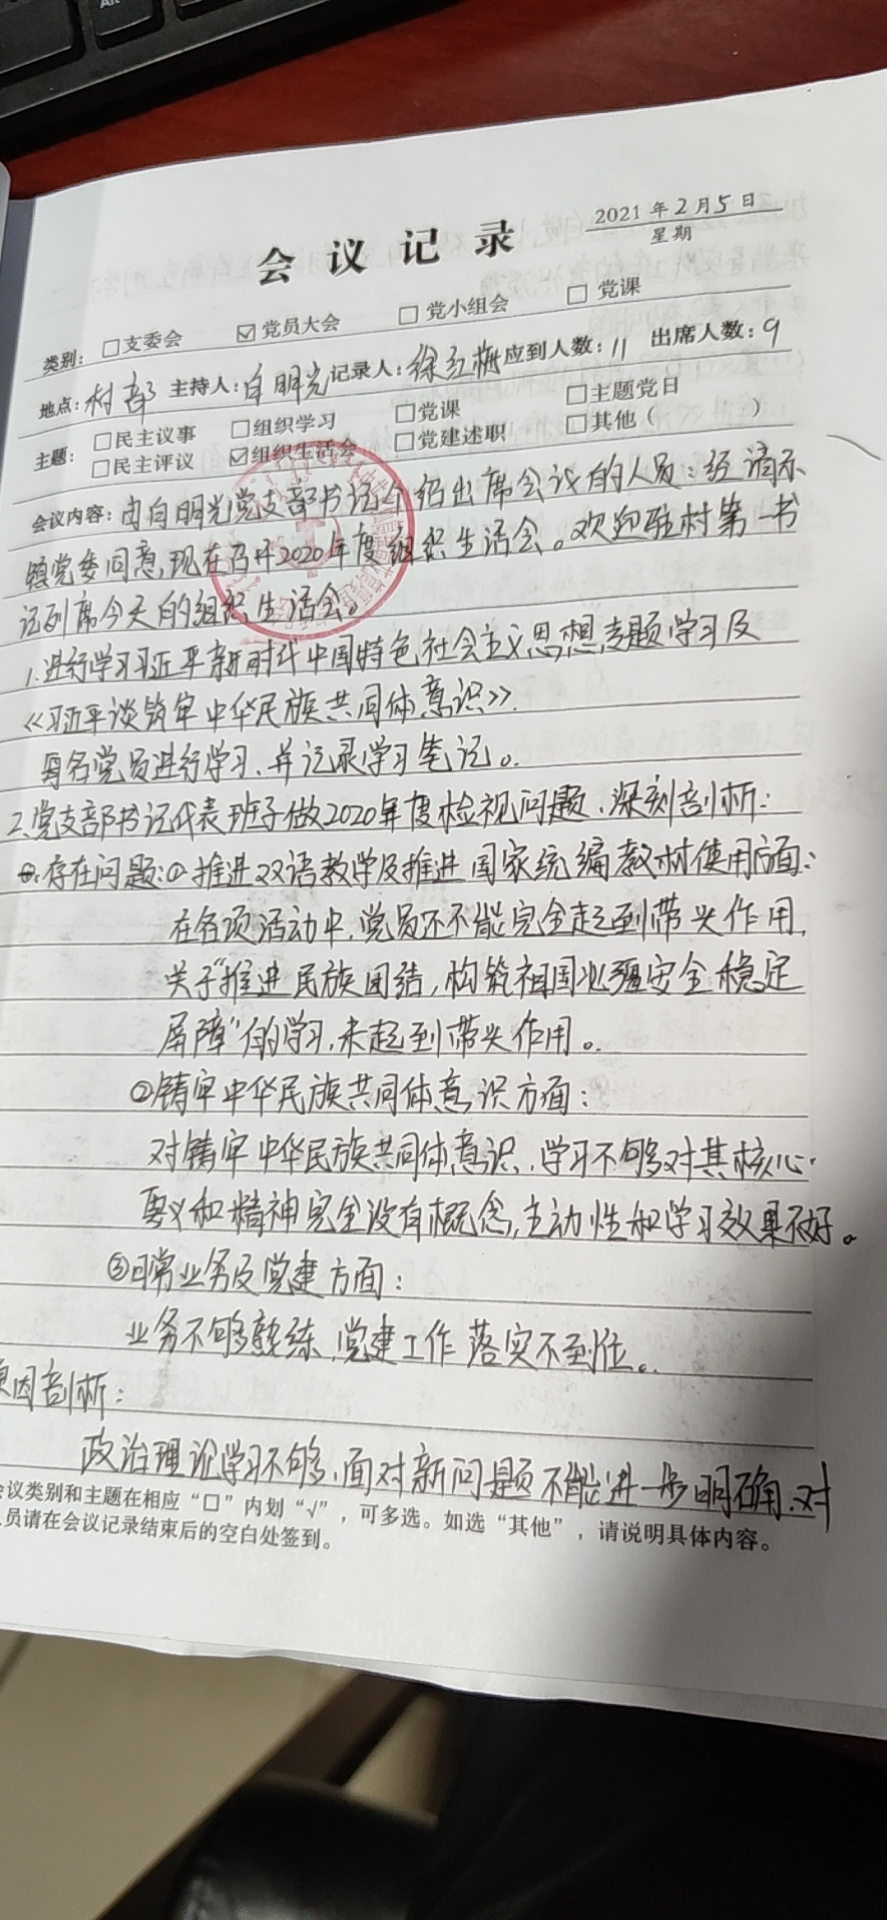 Alt
2021年2月5日
星期
会议记录
类别：□支委会 ☑党员大会 □党小组会 □党课
地点：村部 主持人：白明光 记录人：徐红梅 应到人数：11 出席人数：9
主题：□民主议事 □组织学习 □党课 □主题党日
□民主评议 ☑组织生活会 □党建述职 □其他（ ）
会议内容：由白明光党支部书记介绍出席会议的人员：经请示
镇党委同意，现在召开2020年度组织生活会。欢迎驻村第一书
记列席今天的组织生活会。
1.进行学习习近平新时代中国特色社会主义思想专题学习及
《习近平谈筑牢中华民族共同体意识》.
每名党员进行学习、并记录学习笔记。
2.党支部书记代表班子做2020年度检视问题、深刻剖析：
存在问题：①推进双语教学及推进国家统编教材使用方面：
在各项活动中，党员还不能完全起到带头作用，
关于“推进民族团结，构筑祖国北疆安全稳定
屏障”的学习，未起到带头作用。
②铸牢中华民族共同体意识方面：
对铸牢中华民族共同体意识，学习不够对其核心
要义和精神完全没有概念，主动性和学习效果不好。
③日常业务及党建方面：
业务不够熟练，党建工作落实不到位。
原因剖析：
政治理论学习不够，面对新问题不能进一步明确、对
会议类别和主题在相应“□”内划“√”，可多选。如选“其他”，请说明具体内容。
人员请在会议记录结束后的空白处签到。